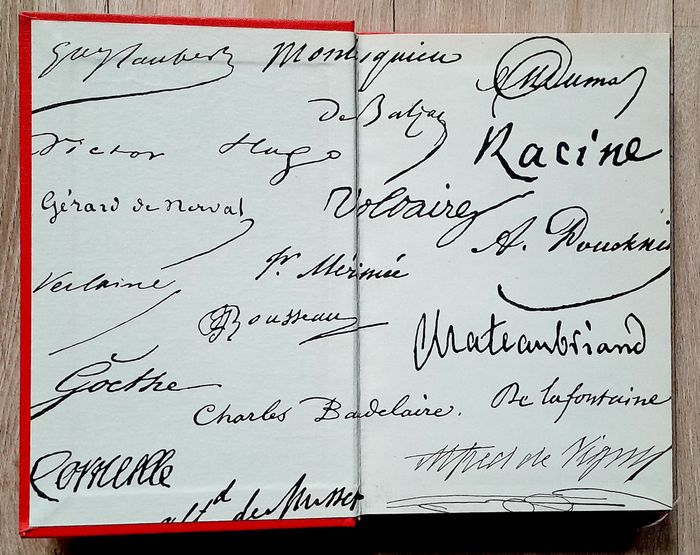 Gve Flaubert
Montesquieu
De Balzac
Victor Hugo
Gérard de Nerval
Voltaire
Verlaine
Pr Mérimée
JJ Rousseau
Goethe
Charles Baudelaire.
Corneille
Alfd de Musset
A Dumas
Racine
A. Pouchkine
Chateaubriand
De la fontaine
Alfred de Vigny